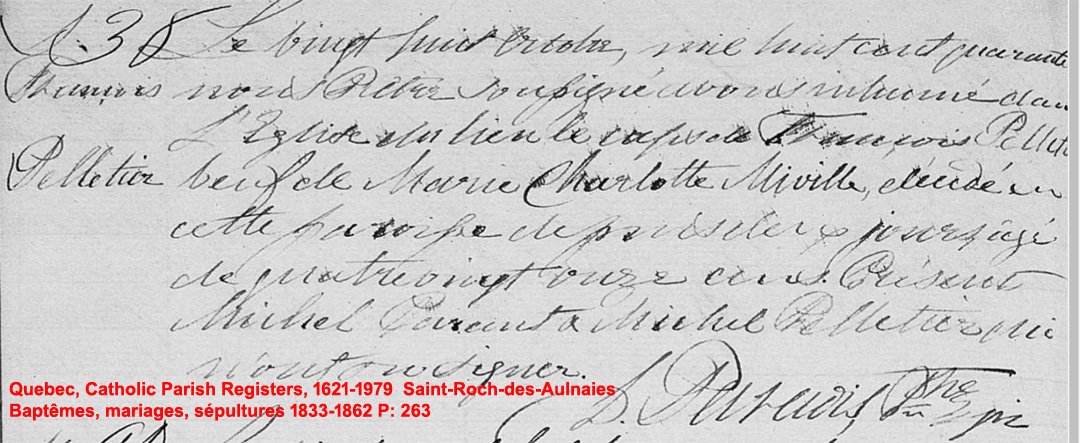 S. 38 Le vingt huit Octobre, mil huit cent quarante
François nous Prêtre soussigné avons inhumé dans
L'Eglise du lieu le corps de François Pelletier
Pelletier veuf de Marie Charlotte Miville, décédé en
cette paroisse depuis deux jours, âgé
de quatre vingt onze ans. Présent
Michel Parant & Michel Pelletier qui
n'ont su signer.
Quebec, Catholic Parish Registers, 1621-1979 Saint-Roch-des-Aulnaies
Baptêmes, mariages, sépultures 1833-1862 P: 263